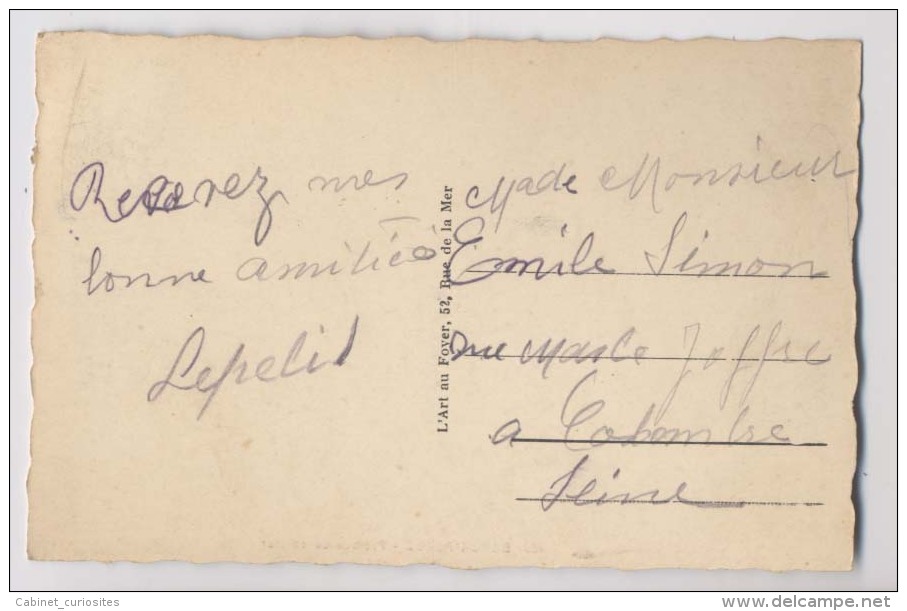 Recevez mes
bonne amitiés
Lepetit
L'Art au Foyer, 52, Rue de la Mer
Made Monsieur
Emile Simon
rue Marle Joffre
a Colombre
Seine
Cabinet_curiosites
www.delcampe.net